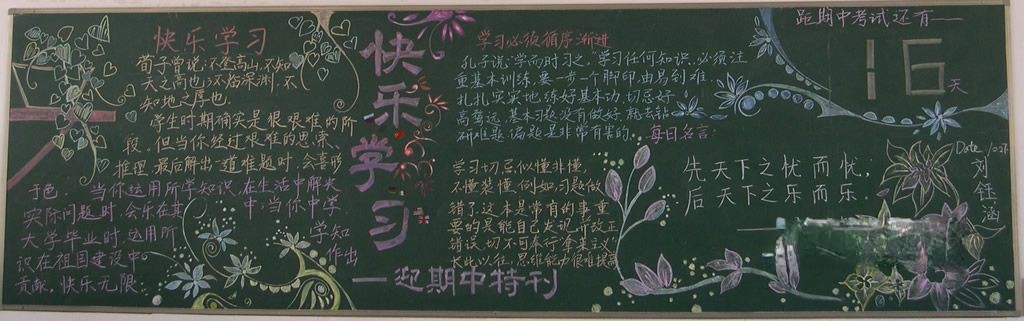 快乐学习
荀子曾说:不登高山,不知
天之高也;不临深渊,不
知地之厚也.
学生时期确实是很艰难的阶
段,但当你经过艰难的思索、
推理,最后解出一道难题时,会喜形
于色.当你运用所学知识,在生活中解决
实际问题时,会乐在其中;当你中学、
大学毕业时,运用所学知
识在祖国建设中作出
贡献,快乐无限.
快乐学习
—迎期中特刊
学习必须循序渐进
孔子说:“学而时习之.”学习任何知识,必须注
重基本训练,要一步一个脚印,由易到难,
扎扎实实地练好基本功,切忌好
高骛远,基本习题没有做好,就去钻
研难题、偏题是非常有害的.
学习切忌似懂非懂,
不懂装懂.例如,习题做
错了,这本是常有的事,重
要的是能自己发现,并改正
错误.切不可奉行“拿来主义”
长此以往,思维能力很难提高
每日名言:
先天下之忧而忧;
后天下之乐而乐.
距期中考试还有——
16天
Date
刘钰涵